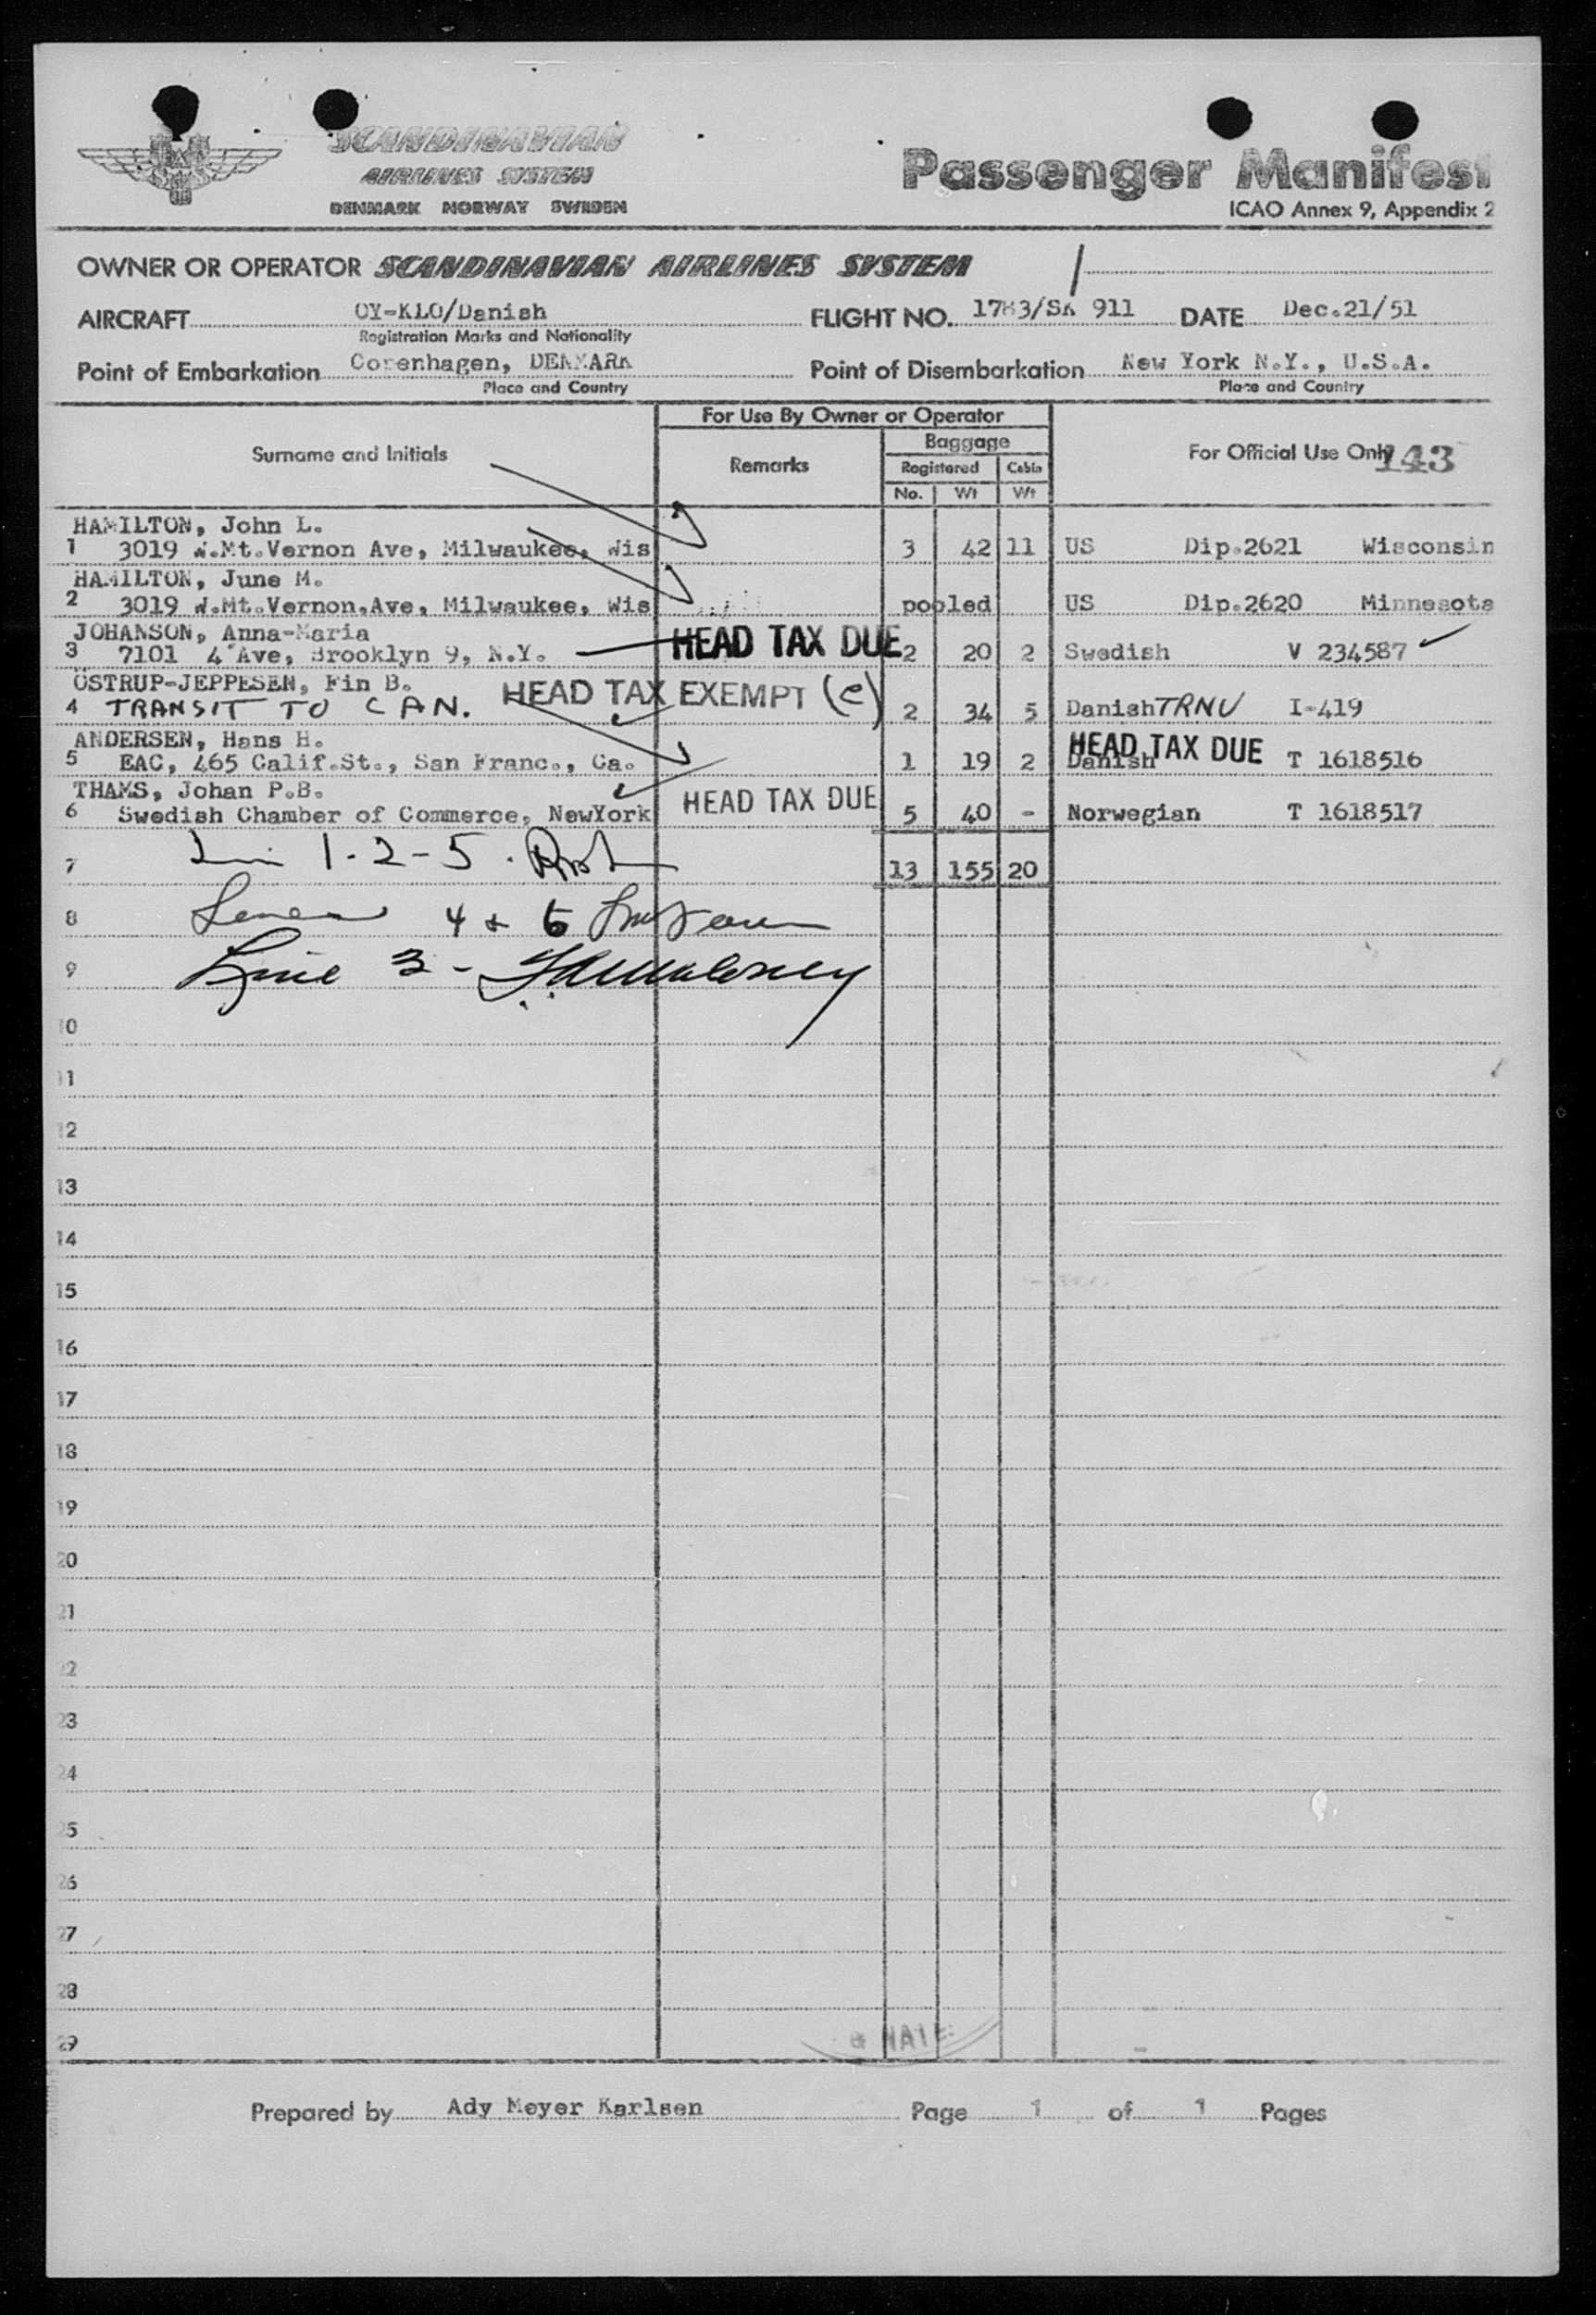 SCANDINAVIAN
AIRLINES SYSTEM
DENMARK NORWAY SWEDEN
Passenger Manifest
ICAO Annex 9, Appendix 2
OWNER OR OPERATOR SCANDINAVIAN AIRLINES SYSTEM
AIRCRAFT OY-KLO/Danish FLIGHT NO. 1783/SK 911 DATE Dec.21/51
Registration Marks and Nationality
Point of Embarkation Copenhagen, DENMARK Point of Disembarkation New York N.Y., U.S.A.
Place and Country Place and Country
For Use By Owner or Operator
Surname and Initials Remarks Baggage For Official Use Only 143
Registered Cabin
No. Wt Wt
HAMILTON, John L.
1 3019 W.Mt.Vernon Ave, Milwaukee, Wis 3 42 11 US Dip.2621 Wisconsin
HAMILTON, June M.
2 3019 W.Mt.Vernon,Ave, Milwaukee, Wis pooled US Dip.2620 Minnesota
JOHANSON, Anna-Maria
3 7101 4 Ave, Brooklyn 9, N.Y. HEAD TAX DUE 2 20 2 Swedish V 234587
OSTRUP-JEPPESEN, Fin B. HEAD TAX EXEMPT (e)
4 TRANSIT TO CAN. 2 34 5 Danish TRNV I-419
ANDERSEN, Hans H. HEAD TAX DUE
5 EAC, 465 Calif.St., San Franc., Ca. 1 19 2 Danish T 1618516
THAMS, Johan P.B.
6 Swedish Chamber of Commerce, NewYork HEAD TAX DUE 5 40 - Norwegian T 1618517
7 1-2-5 13 155 20
8 4 + 6
9 Line 3 -
10
11
12
13
14
15
16
17
18
19
20
21
22
23
24
25
26
27
28
29
Prepared by Ady Meyer Karlsen Page 1 of 1 Pages